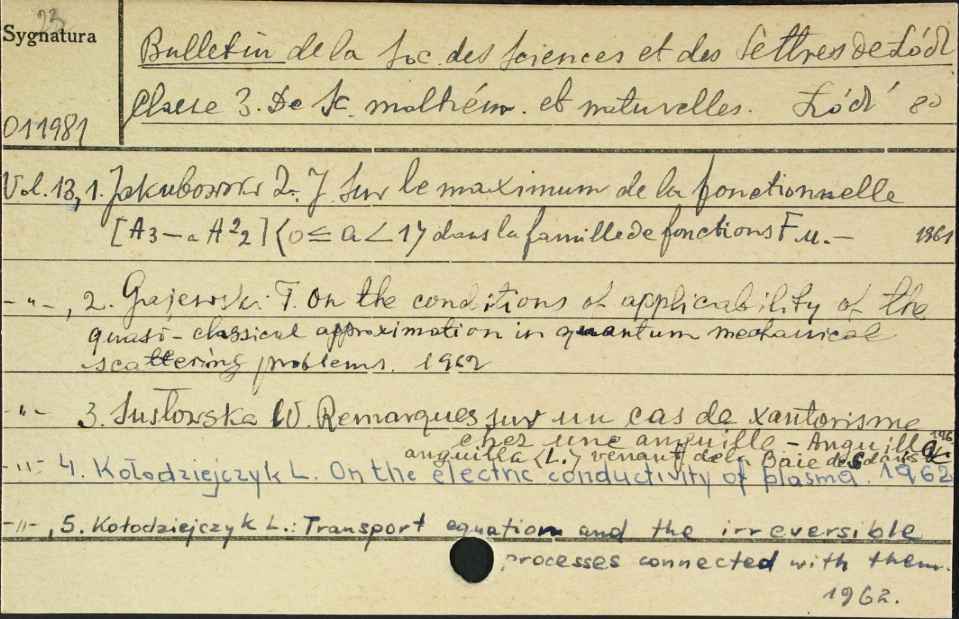 23
Sygnatura
Bulletin de la Soc. des Sciences et des Lettres de Łódź
Classe 3. De Sc. mathém. et naturelles. Łódź 80
011981
Vol. 13, 1. Jakubowski Z. J. Sur le maximum de la fonctionnelle
[A3 – a A²2] (0 ≤ a < 1) dans la famille de fonctions F.M. – 1961
-"-, 2. Gajewski T. On the conditions of applicability of the
quasi-classical approximation in quantum mechanical
scattering problems. 1962
-"- 3. Susłowska W. Remarques sur un cas de xantorisme
chez une anguille – Anguilla
anguilla (L.) venant de la Baie de
-"- 4. Kołodziejczyk L. On the electric conductivity of plasma. 1962
-"-, 5. Kołodziejczyk L.: Transport equation and the irreversible
processes connected with them.
1962.